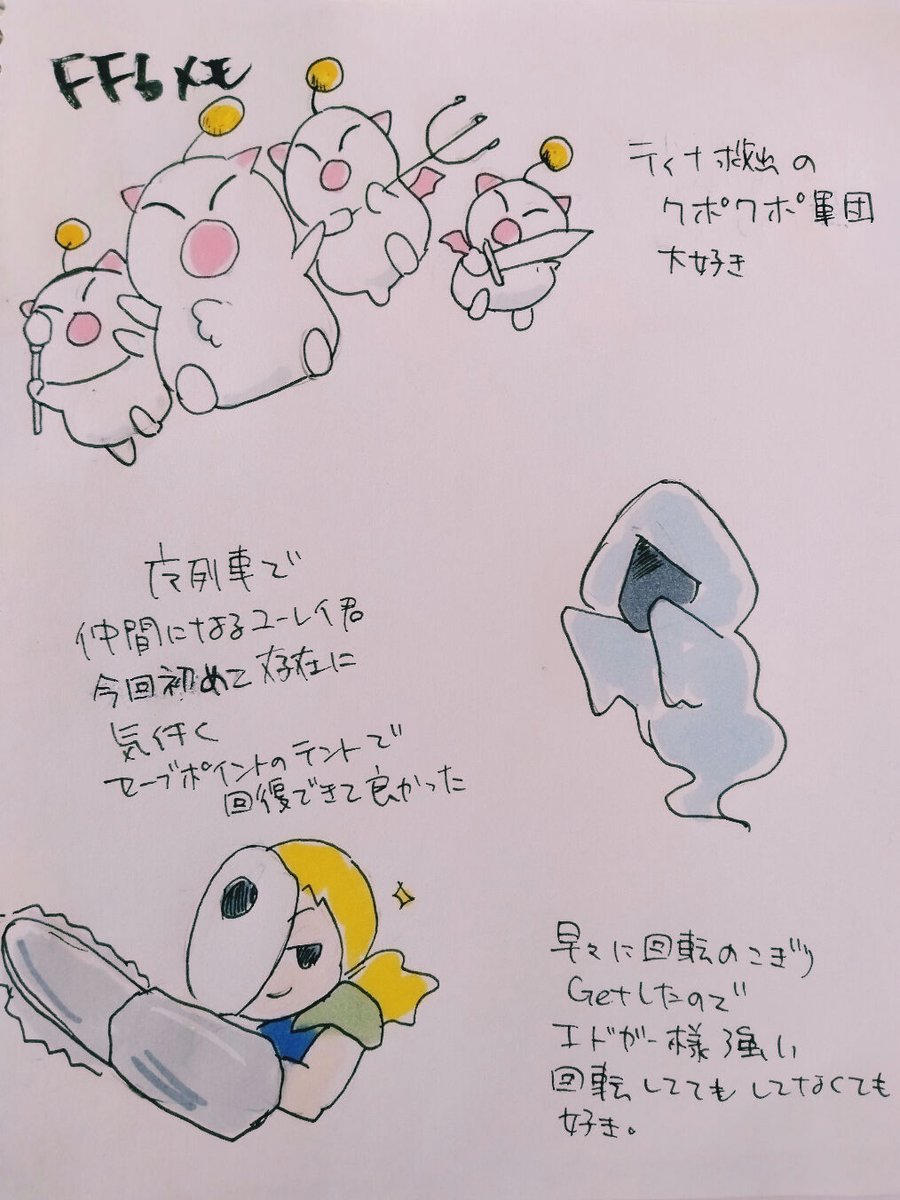 FF6メモ
ティナ救出の
クポクポ軍団
大好き
夜列車で
仲間になるユーレイ君
今回初めて存在に
気付く
セーブポイントのテントで
回復できて良かった
早々に回転のこぎり
Getしたので
エドガー様強い
回転しててもしてなくても
好き。